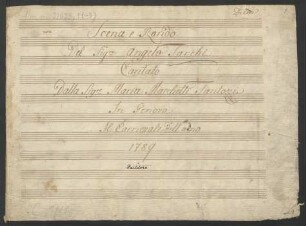 Scena e Rondò
Del Sigr Angelo Tarchi
Cantato
Dalla Sigra Maria Marchetti Fantozzi
In Genova
Il Carnovale dell'anno
1789